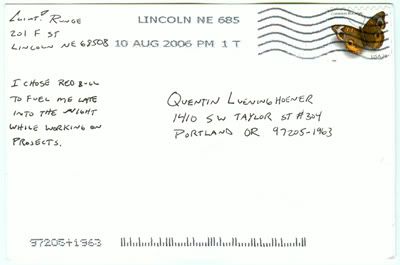 Runge
201 F ST
LINCOLN NE 68508
LINCOLN NE 685
10 AUG 2006 PM 1 T
I CHOSE RED BULL
TO FUEL ME LATE
INTO THE NIGHT
WHILE WORKING ON
PROJECTS.
QUENTIN LUENINGHOENER
1410 SW TAYLOR ST #304
PORTLAND OR 97205-1963
97205+1963